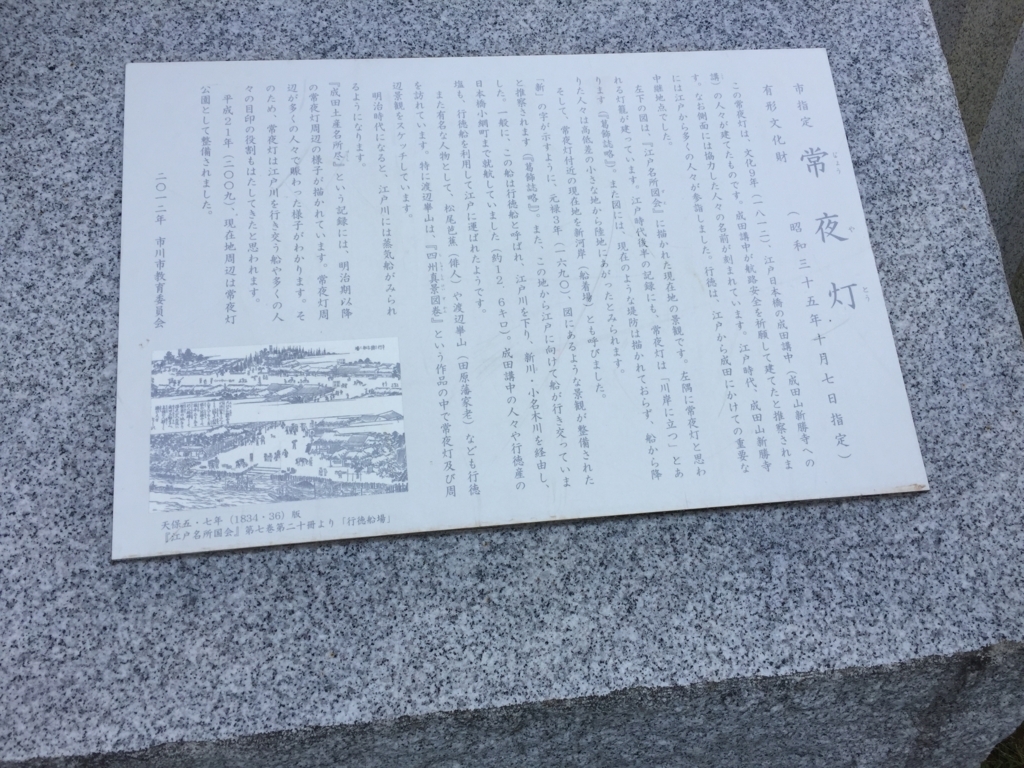 市指定
有形文化財
常夜灯
じょう や とう
(昭和三十五年十月七日指定)
この常夜灯は、文化9年(一八一二)、江戸日本橋の成田講中(成田山新勝寺への
講)の人々が建てたものです。成田講中が航路安全を祈願して建てたと推察されま
す。なお側面には協力した人々の名前が刻まれています。江戸時代、成田山新勝寺
には江戸から多くの人々が参詣しました。行徳は、江戸から成田にかけての重要な
中継地点でした。
左下の図は、『江戸名所図会』に描かれた現在地の景観です。左隅に常夜灯と思わ
れる灯籠が建っています。江戸時代後半の記録にも、常夜灯は「川岸に立つ」とあ
ります(『葛飾誌略』)。また図には、現在のような堤防は描かれておらず、船から降
りた人々は高低差の小さな地から陸地にあがったとみられます。
そして、常夜灯付近の現在地を新河岸(船着場)とも呼びました。
「新」の字が示すように、元禄三年(一六九〇)、図にあるような景観が整備された
と推察されます(『葛飾誌略』)。また、この地から江戸に向けて船が行き交っていま
した。一般に、この船は行徳船と呼ばれ、江戸川を下り、新川・小名木川を経由し、
日本橋小網町まで就航していました(約12.6キロ)。成田講中の人々や行徳産の
塩も、行徳船を利用して江戸に運ばれたようです。
また有名な人物として、松尾芭蕉(俳人)や渡辺崋山(田原藩家老)なども行徳
を訪れています。特に渡辺崋山は、『四州真景図巻』という作品の中で常夜灯及び周
辺景観をスケッチしています。
明治時代になると、江戸川には蒸気船がみられ
るようになります。
『成田土産名所尽』という記録には、明治期以降
の常夜灯周辺の様子が描かれています。常夜灯周
辺が多くの人々で賑わった様子がわかります。そ
のため、常夜灯は江戸川を行き交う船や多くの人
々の目印の役割もはたしてきたと思われます。
平成21年(二〇〇九)、現在地周辺は常夜灯
公園として整備されました。
二〇一二年 市川市教育委員会
天保五・七年(1834・36)版
『江戸名所図会』第七巻第二十冊より「行徳船場」